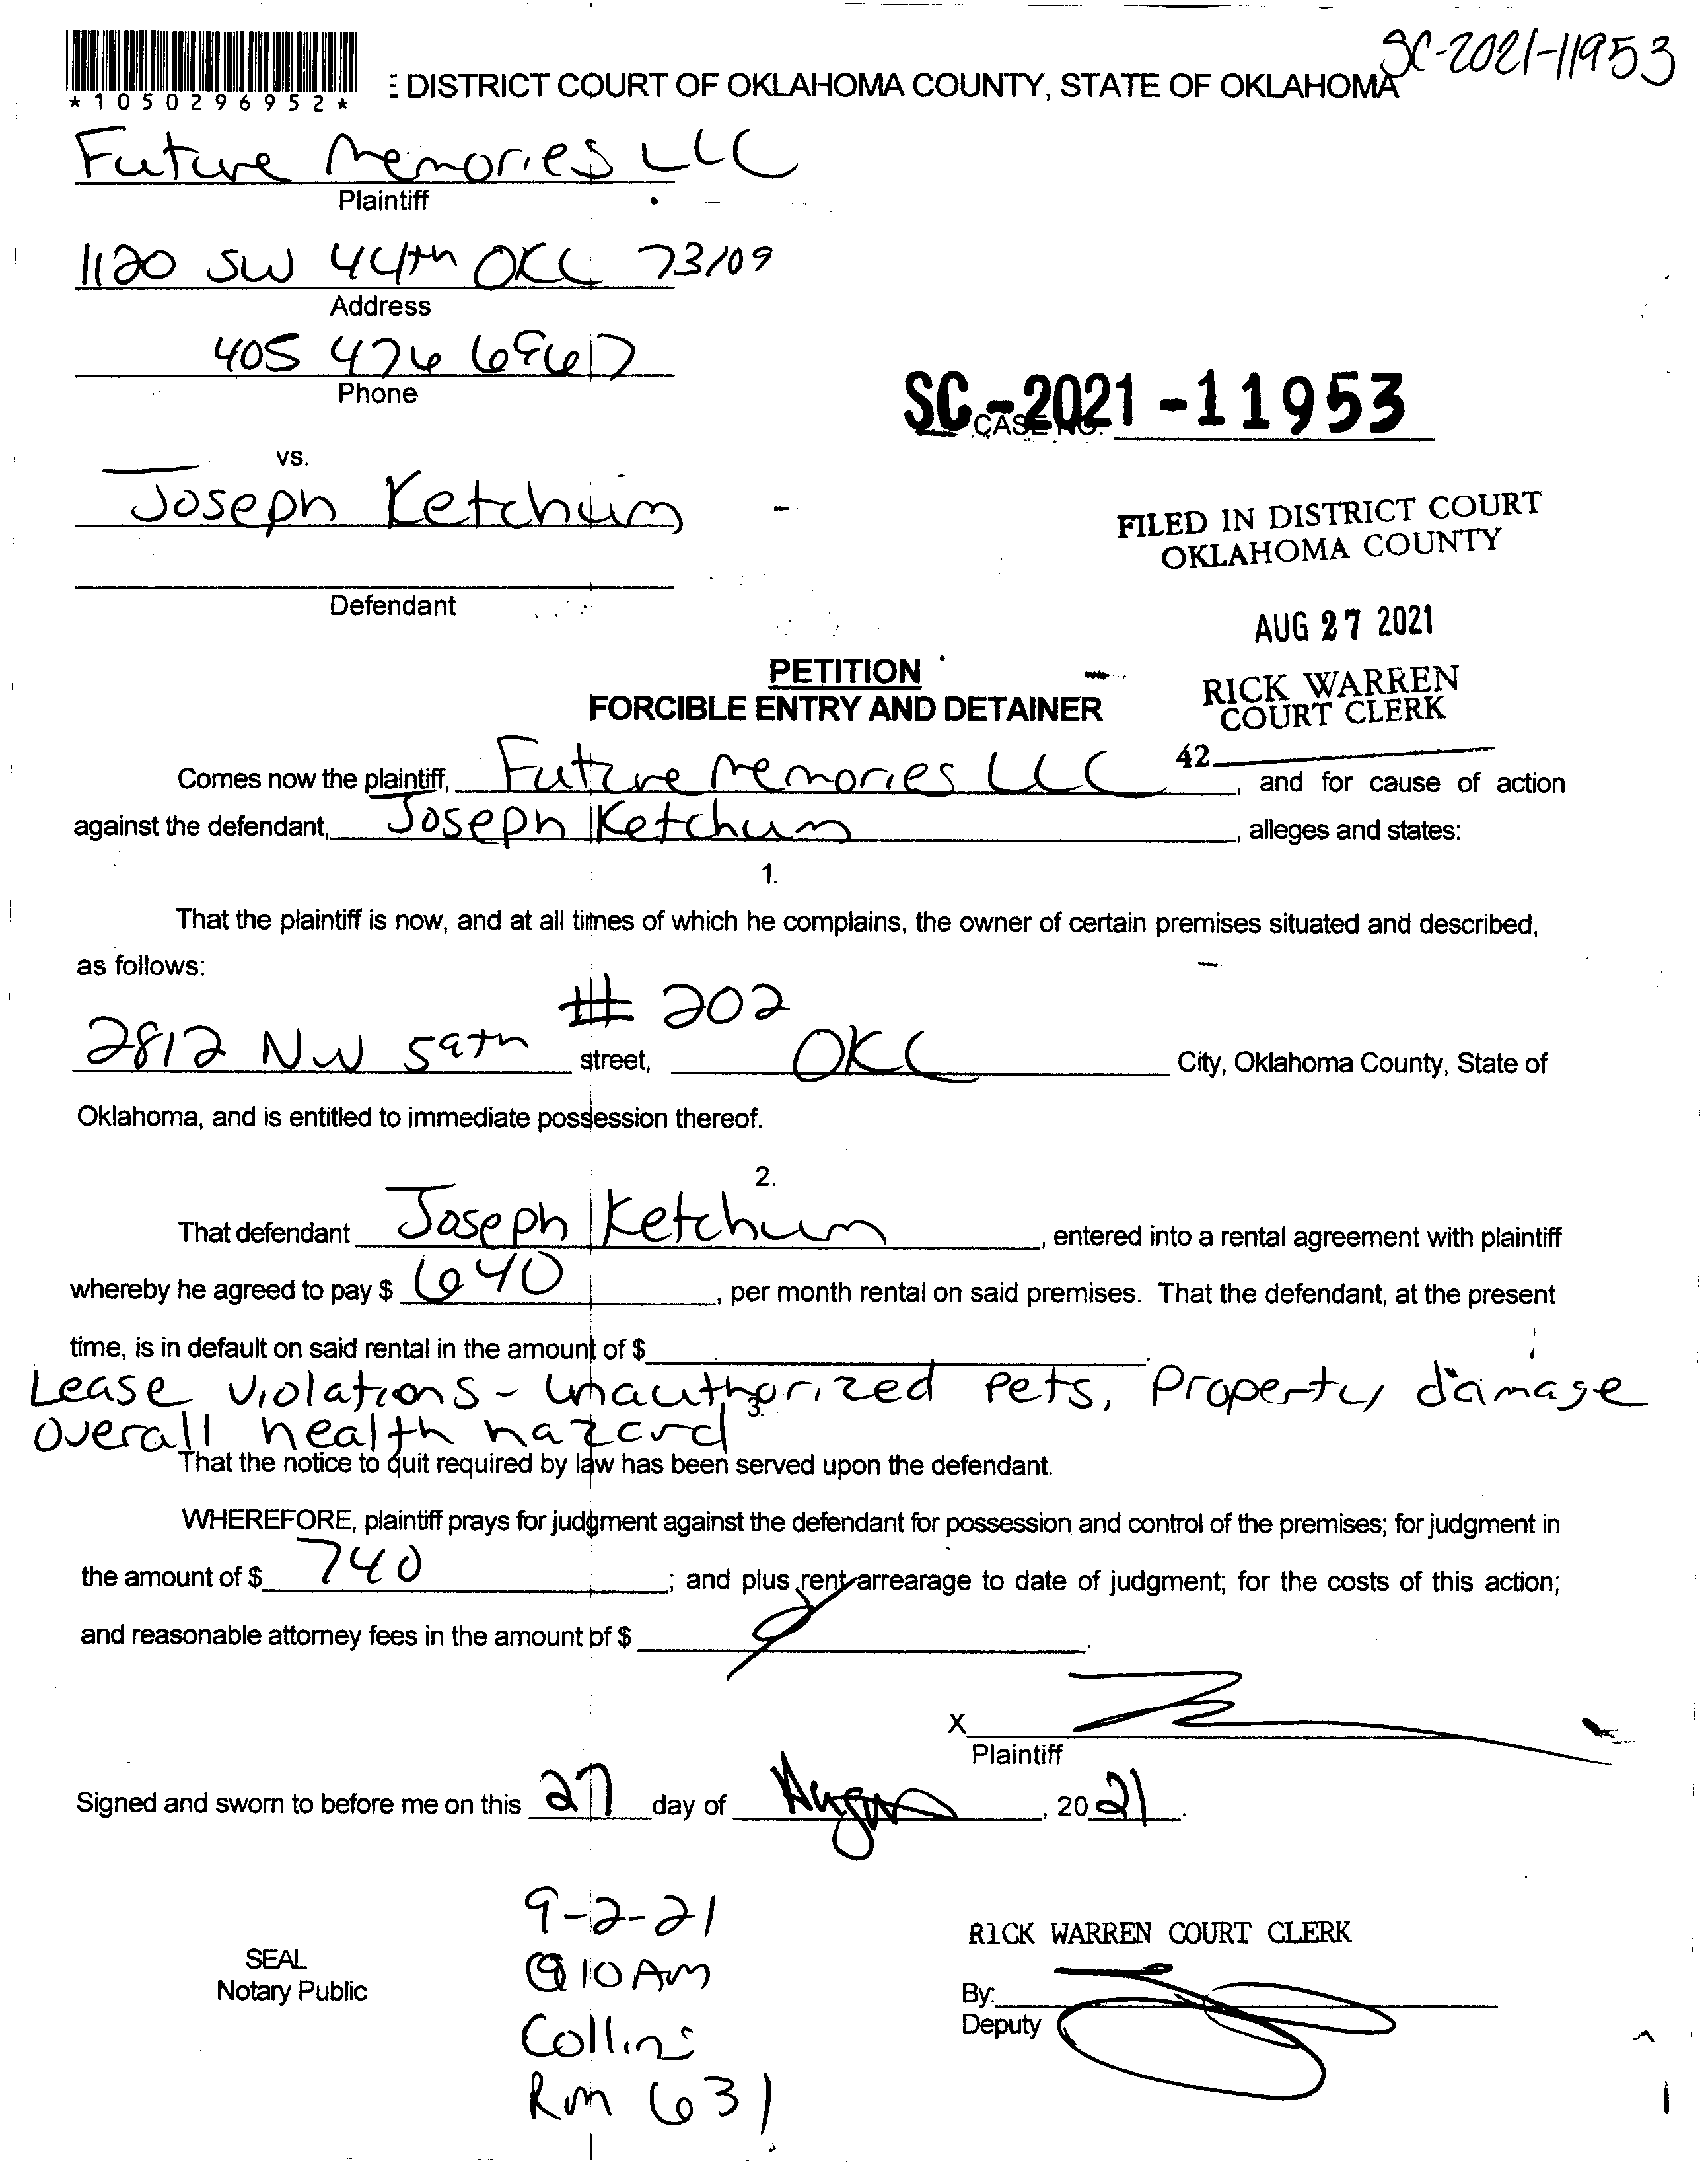 SC-2021-11953
: DISTRICT COURT OF OKLAHOMA COUNTY, STATE OF OKLAHOMA
*1050296952*
Future Memories LLC
Plaintiff
1120 SW 44th OKC 73109
Address
405 476 6967
Phone
SC-2021-11953
CASE NO.
vs.
Joseph Ketchum
Defendant
FILED IN DISTRICT COURT
OKLAHOMA COUNTY
AUG 27 2021
RICK WARREN
COURT CLERK
42
PETITION
FORCIBLE ENTRY AND DETAINER
Comes now the plaintiff, Future Memories LLC, and for cause of action
against the defendant, Joseph Ketchum, alleges and states:
1.
That the plaintiff is now, and at all times of which he complains, the owner of certain premises situated and described,
as follows:
# 202
2812 NW 59th street, OKC City, Oklahoma County, State of
Oklahoma, and is entitled to immediate possession thereof.
2.
That defendant Joseph Ketchum, entered into a rental agreement with plaintiff
whereby he agreed to pay $ 640, per month rental on said premises. That the defendant, at the present
time, is in default on said rental in the amount of $.
Lease violations - unauthorized pets, Property damage
overall health hazard
3.
That the notice to quit required by law has been served upon the defendant.
WHEREFORE, plaintiff prays for judgment against the defendant for possession and control of the premises; for judgment in
the amount of $ 740; and plus rent arrearage to date of judgment; for the costs of this action;
and reasonable attorney fees in the amount of $.
X
Plaintiff
Signed and sworn to before me on this 27 day of August, 2021.
9-2-21
@ 10 AM
Collins
Rm 631
SEAL
Notary Public
RICK WARREN COURT CLERK
By:
Deputy